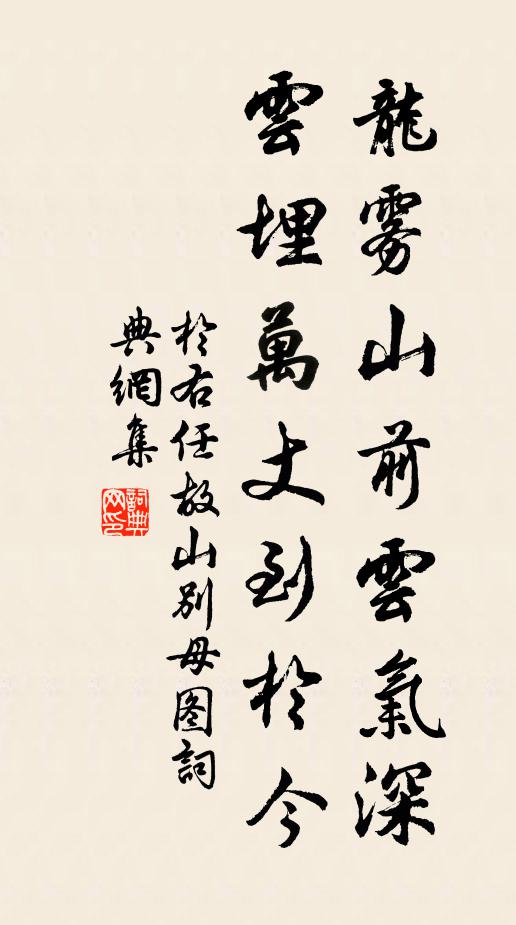 龍霧山前雲氣深
雲埋萬丈到於今
於右任故山别母图詞
典網集
詞典网印